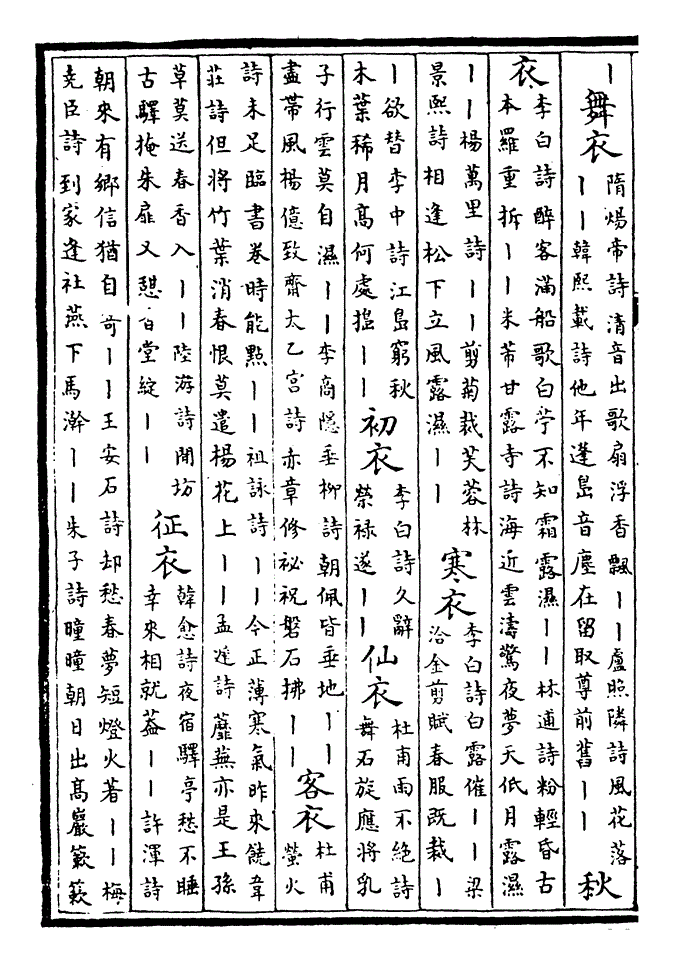 丨
舞衣
隋煬帝詩清音出歌扇浮香飄丨丨盧照隣詩風花落
丨丨韓熙載詩他年蓬島音塵在留取尊前舊丨丨
秋
衣
李白詩醉客滿船歌白苧不知霜露濕丨丨林逋詩粉輕昏古
本羅重拆丨丨米芾甘露寺詩海近雲濤驚夜夢天低月露濕
丨丨楊萬里詩丨丨剪菊裁芙蓉林
景熙詩相逢松下立風露濕丨丨
寒衣
李白詩白露催丨丨梁
洽金剪賦春服既裁丨
丨欲替李中詩江島窮秋
木葉稀月高何處搗丨丨
初衣
李白詩久辭
榮禄遂丨丨
仙衣
杜甫雨不絶詩
舞石旋應將乳
子行雲莫自濕丨丨李商隱垂柳詩朝佩皆垂地丨丨
盡帶風楊億致齋太乙宮詩赤章修祕祝磐石拂丨丨
客衣
杜甫
螢火
詩未足臨書卷時能點丨丨祖詠詩丨丨今正薄寒氣昨來饒韋
莊詩但將竹葉消春恨莫遣楊花上丨丨孟遲詩蘼蕪亦是王孫
草莫送春香入丨丨陸游詩聞坊
古驛掩朱扉又憩百堂綻丨丨
征衣
韓愈詩夜宿驛亭愁不睡
幸來相就蓋丨丨許渾詩
朝來有鄉信猶自寄丨丨王安石詩却愁春夢短燈火著丨丨梅
堯臣詩到家逢社燕下馬澣丨丨朱子詩曈曈朝日出高巖簌簌